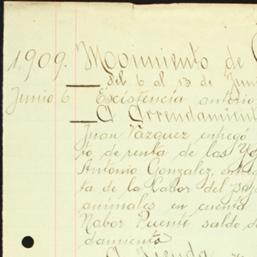 1909. Movimiento de
Del 6 al 13 de Juni
Junio 6 Existencia anterio
A Arrendamient
Juan Vazquez entregó
to de renta de las Ye
Antonio Gonzalez, entre
ta de la labor del
animales en cuenta
Nabor Puente saldo de
damiento
A Tienda